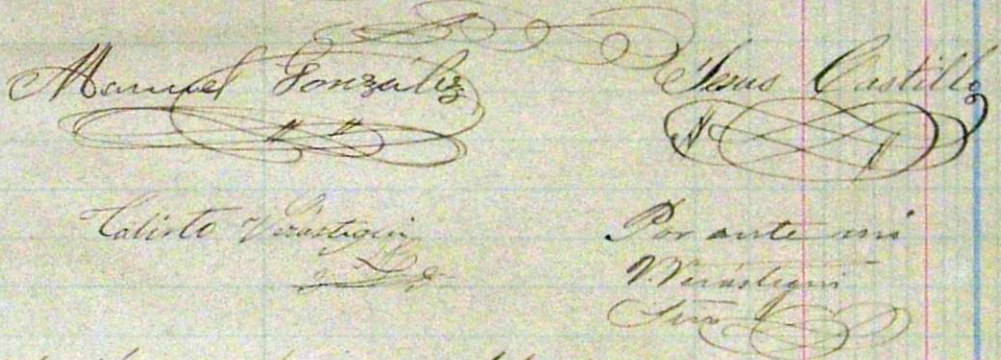 Manuel González
Jesus Castillo
Calisto Verástegui
Por ante mi
V. Verástegui
Srio